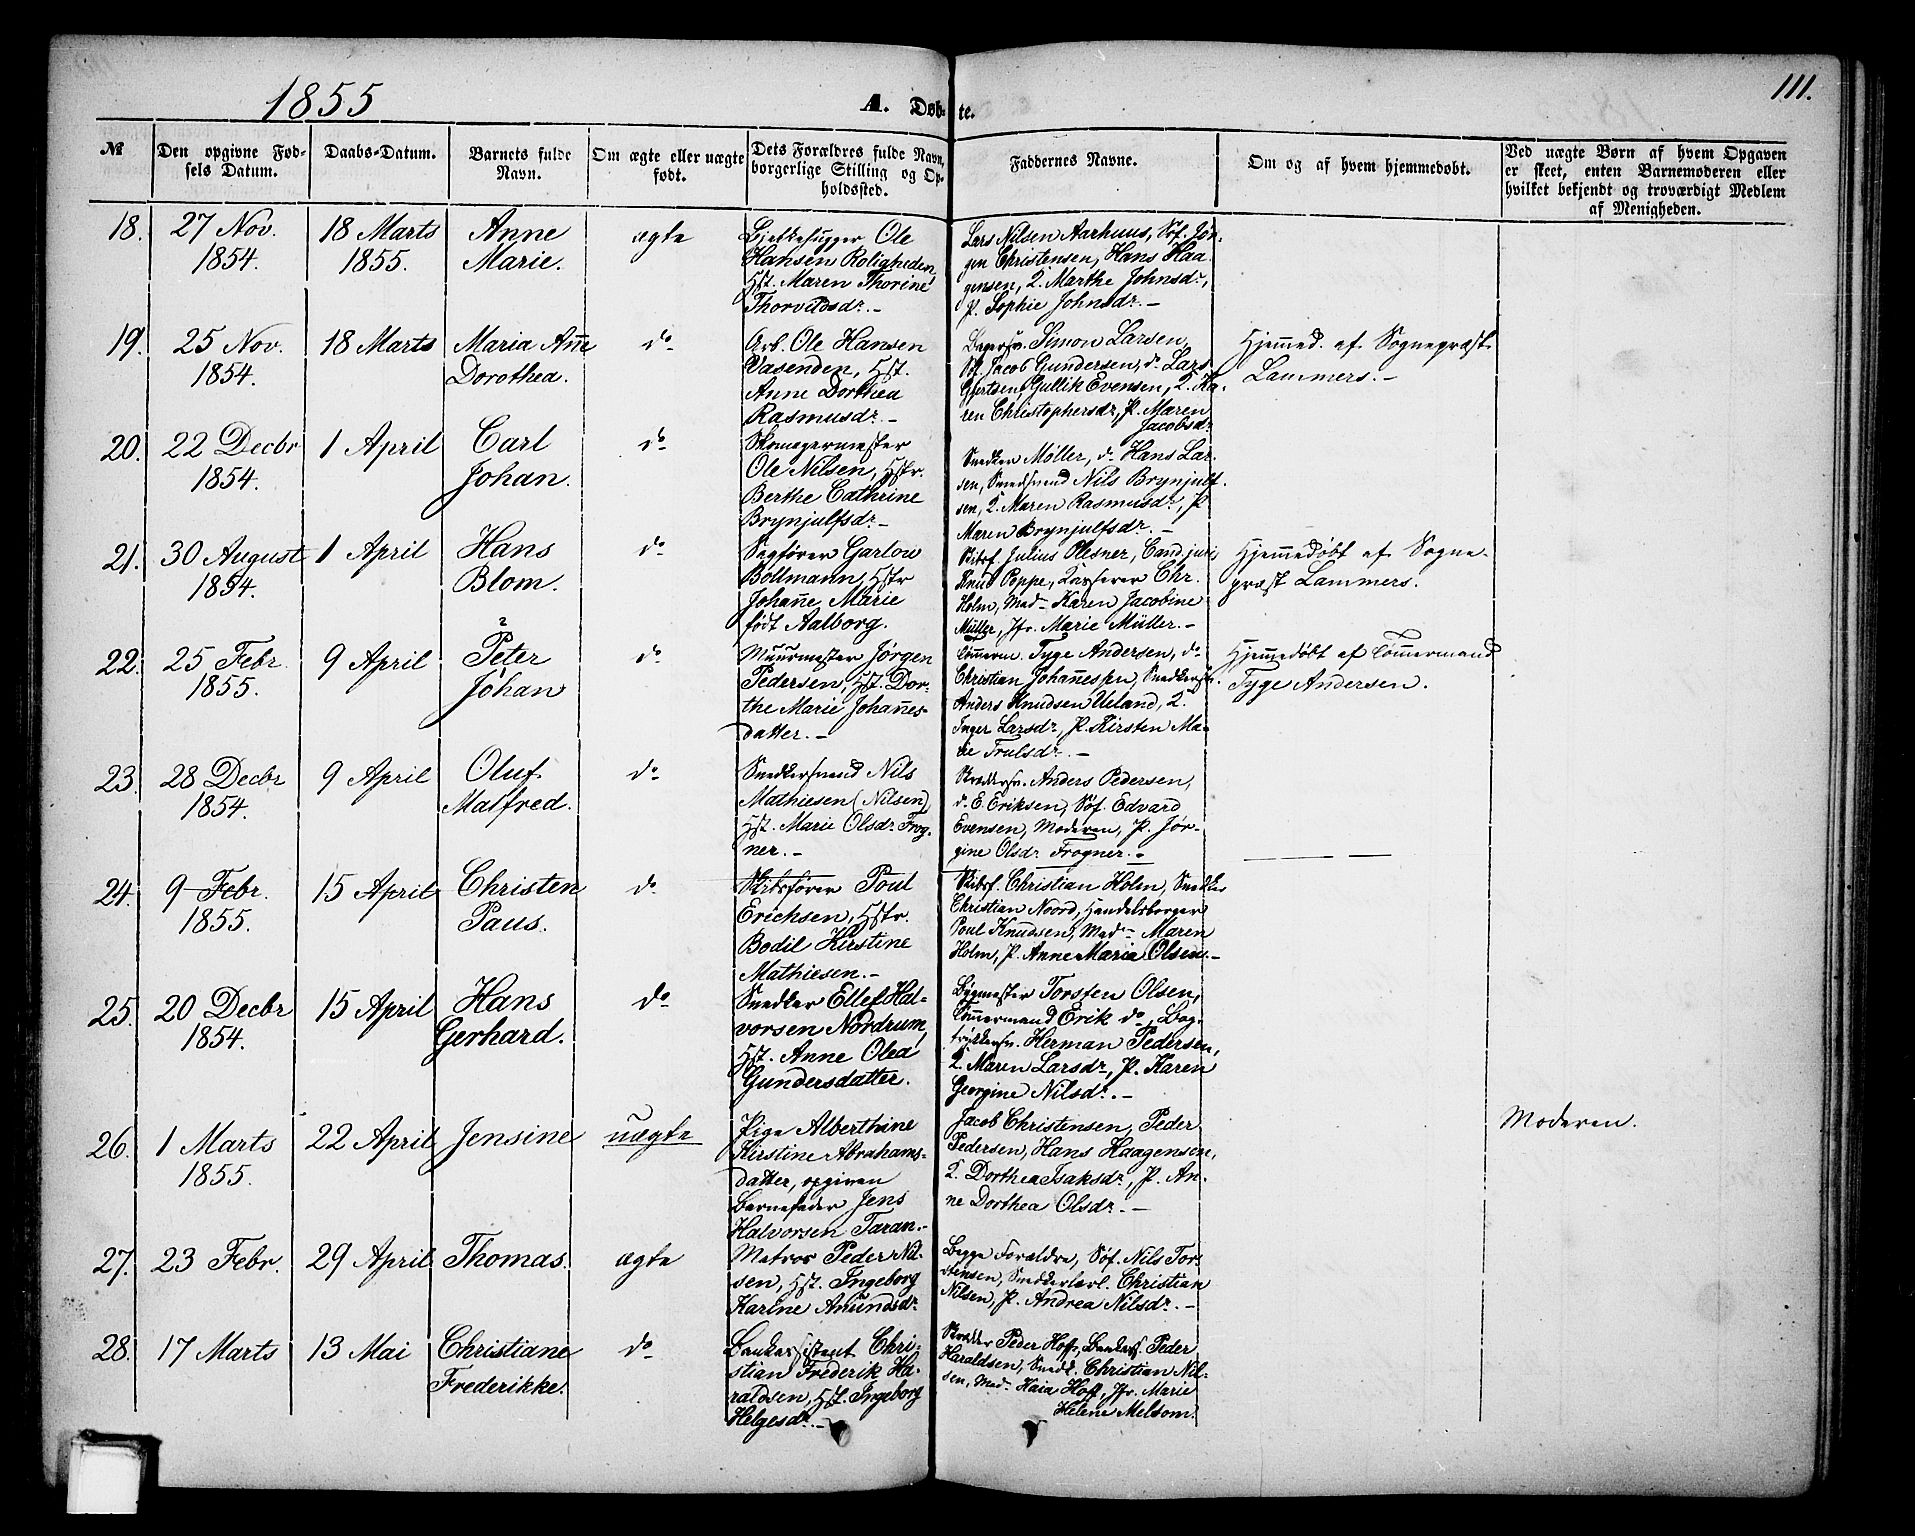 1855
A. Døbte.
111.
№
Den opgivne Fød-
sels Datum.
Daabs-Datum.
Barnets fulde
Navn.
Om ægte eller uægte
født.
Dets Forældres fulde Navn,
borgerlige Stilling og Op-
holdssted.
Faddernes Navne.
Om og af hvem hjemmedøbt.
Ved uægte Børn af hvem Opgaven
er skeet, enten Barnemoderen eller
hvilket bekjendt og troværdigt Medlem
af Menigheden.
18.
27 Nov.
1854.
18 Marts
1855.
Anne
Marie.
ægte
Bjelkehugger Ole
Hansen Roligheden,
Hst. Maren Thorine
Thorvldsdr. -
Lars Nilsen Aarhuus, Søf. Jør-
gen Christensen, Hans Haa-
gensen, K. Marthe Johnsdr,
P. Sophie Johnsdr. -
19.
25 Nov.
1854.
18 Marts
Maria Ane
Dorothea.
do
Arb. Ole Hansen
Vasenden, Hst.
Anne Dorthea
Rasmusdr. -
Bagersv. Simon Larsen,
Søf. Jacob Gundersen, do Lars
Gjertsen, Gullik Evensen, K. Ka-
ren Christophersdr, P. Maren
Jacobsdr
Hjemmed. af Sognepræst
Lammers. -
20.
22 Decbr
1854.
1 April
Carl
Johan.
do
Skomagermester
Ole Nilsen, Hstr.
Berthe Cathrine
Brynjulfsdr. -
Snedker Møller, do Hans Lar-
sen, Smedsvend Nils Brynjulf-
sen, K. Maren Rasmusdr, P.
Maren Brynjulfsdr. -
21.
30 August
1854.
1 April
Hans
Blom.
do
Sagfører Garlov
Bollmann, Hstr
Johane Marie
født Aalborg.
Skibsf. Julius Olesner, Cand. juris
Knud Poppe, Kasserer Chr.
Holm, Mad. Karen Jacobine
Müller, Jfr. Marie Müller. -
Hjemmedøbt af Sogne-
præst Lammers.
22.
25 Febr.
1855.
9 April
Peter
Johan
do
Muurmester Jørgen
Pedersen, Hst. Dor-
the Marie Johanes-
datter. -
Tømerm. Tyge Andersen, do
Christian Johannessen, Snedkersv.
Anders Knudsen Ueland, K.
Inger Larsdr, P. Kirsten Ma-
rie Trulsdr. -
Hjemmedøbt af Tømmermand
Tyge Andersen.
23.
28 Decbr
1854.
9 April
Oluf
Malfred.
do
Snedkersvend Nils
Mathiesen (Nilsen),
Hst. Marie Olsdr. Frog-
ner. -
Skræddersv. Anders Pedersen,
do E. Eriksen, Søf. Edvard
Evensen, Moderen, P. Jør-
gine Olsdr Frogner. -
24.
9 Febr.
1855.
15 April
Christen
Paus.
do
Skibsfører Poul
Erichsen, Hstr.
Bodil Kirstine
Mathiesen. -
Skibsf. Christian Holm, Snedker
Christian Noord, Handelsborger
Poul Knudsen, Mad. Maren
Holm, P. Anne Maria Olsen. -
25.
20 Decbr
1854.
15 April
Hans
Gerhard.
do
Snedker Ellef Hal-
vorsen Nordrum,
Hst. Anne Olea
Gundersdatter.
Bygmester Torsten Olsen,
Tømmermand Erik do, Bog-
trykkersv. Herman Pedersen,
K. Maren Larsdr, P. Karen
Georgine Nilsdr. -
26.
1 Marts
1855.
22 April
Jensine
uægte
Pige Alberthine
Kirstine Abrahams-
datter, opgiven
Barnefader Jens
Halvorsen Taran. -
Jacob Christensen, Peder
Pedersen, Hans Haagensen,
K. Dorthea Isaksdr, P. An-
ne Dorthea Olsdr. -
Moderen.
27.
23 Febr.
29 April
Thomas.
ægte
Matros Peder Nil-
sen, Hst. Ingeborg
Karine Amundsdr.
Begge Forældre, Søf. Nils Tor-
stensen, Snedkerlærl. Christian
Nilsen, P. Andrea Nilsdr. -
28.
17 Marts
13 Mai
Christiane
Frederikke.
do
Bankassistent Chri-
stian Frederik Ha-
raldsen, Hst. Ingeborg
Helgesdr. -
Skrædder Peder Hoff, Peder
Haraldsen, Snedk. Christian Nil-
sen, Mad. Haia Hoff, Jfr. Marie
Helene Melsom.